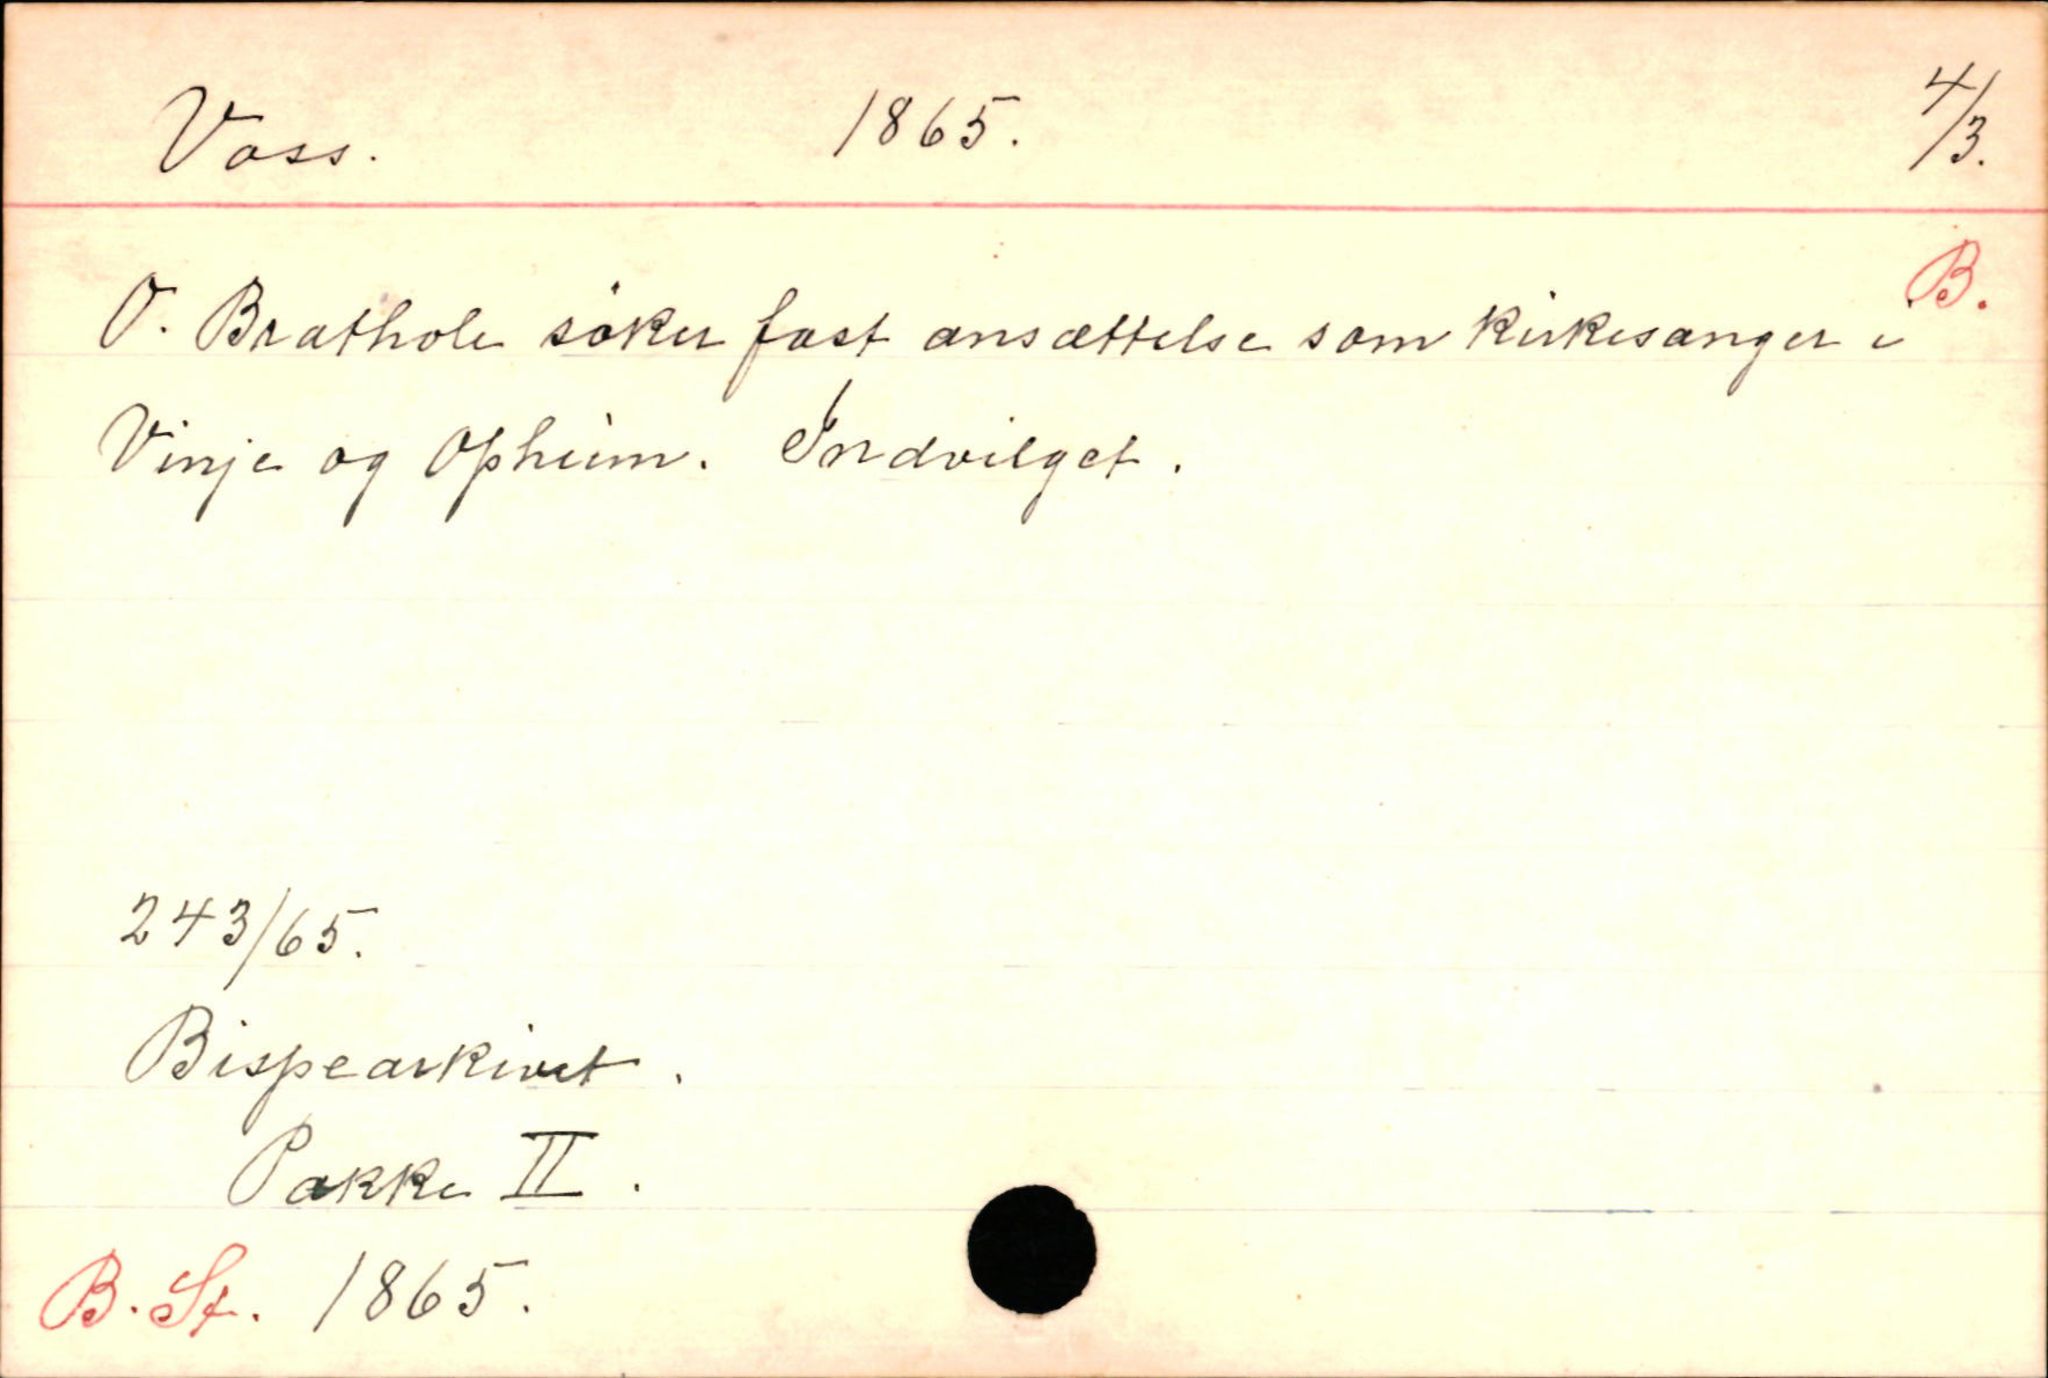 Voss. 1865. 4/3.
B.
O. Brathole søker fast ansættelse som kirkesanger i
Vinje og Opheim. Indvilget.
243/65.
Bispearkivet.
Pakke II.
B. St. 1865.